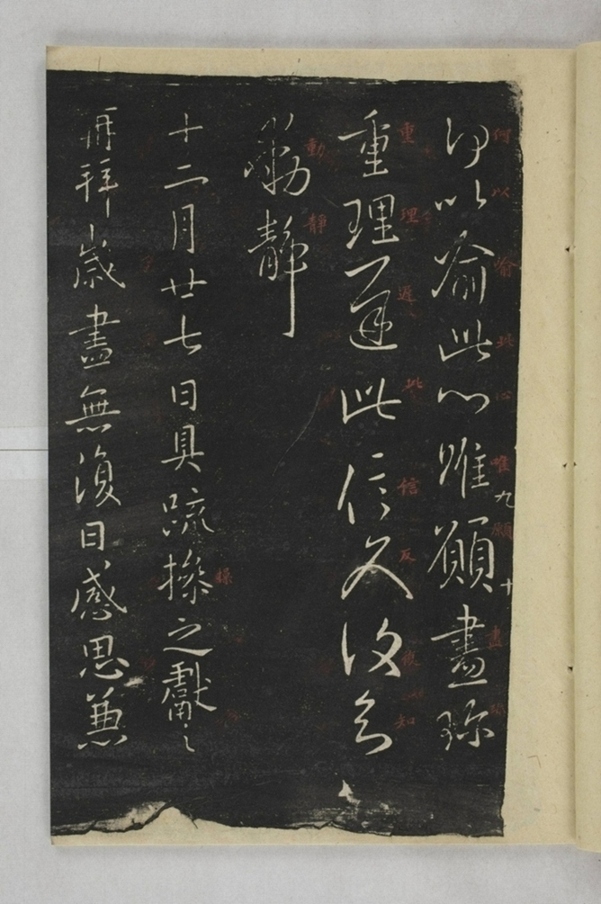 何以喻此心唯願盡珍
重理遲此信反復知
動靜
十二月廿七日具疏操之獻之
再拜歲盡無復日感思兼